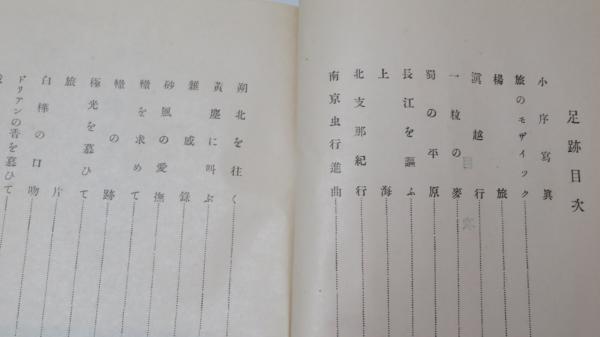 足跡目次
小序寫眞
旅のモザイック
楊旅
滇越行
一粒の麥
蜀の平原
長江を謳ふ
上海
北支那紀行
南京虫行進曲
朔北を往く
黃塵に叫ぶ
雜感錄
砂風の愛撫
轍を求めて
轍の跡
極光を慕ひて
旅片
白樺の口吻
ドリアンの香を慕ひて